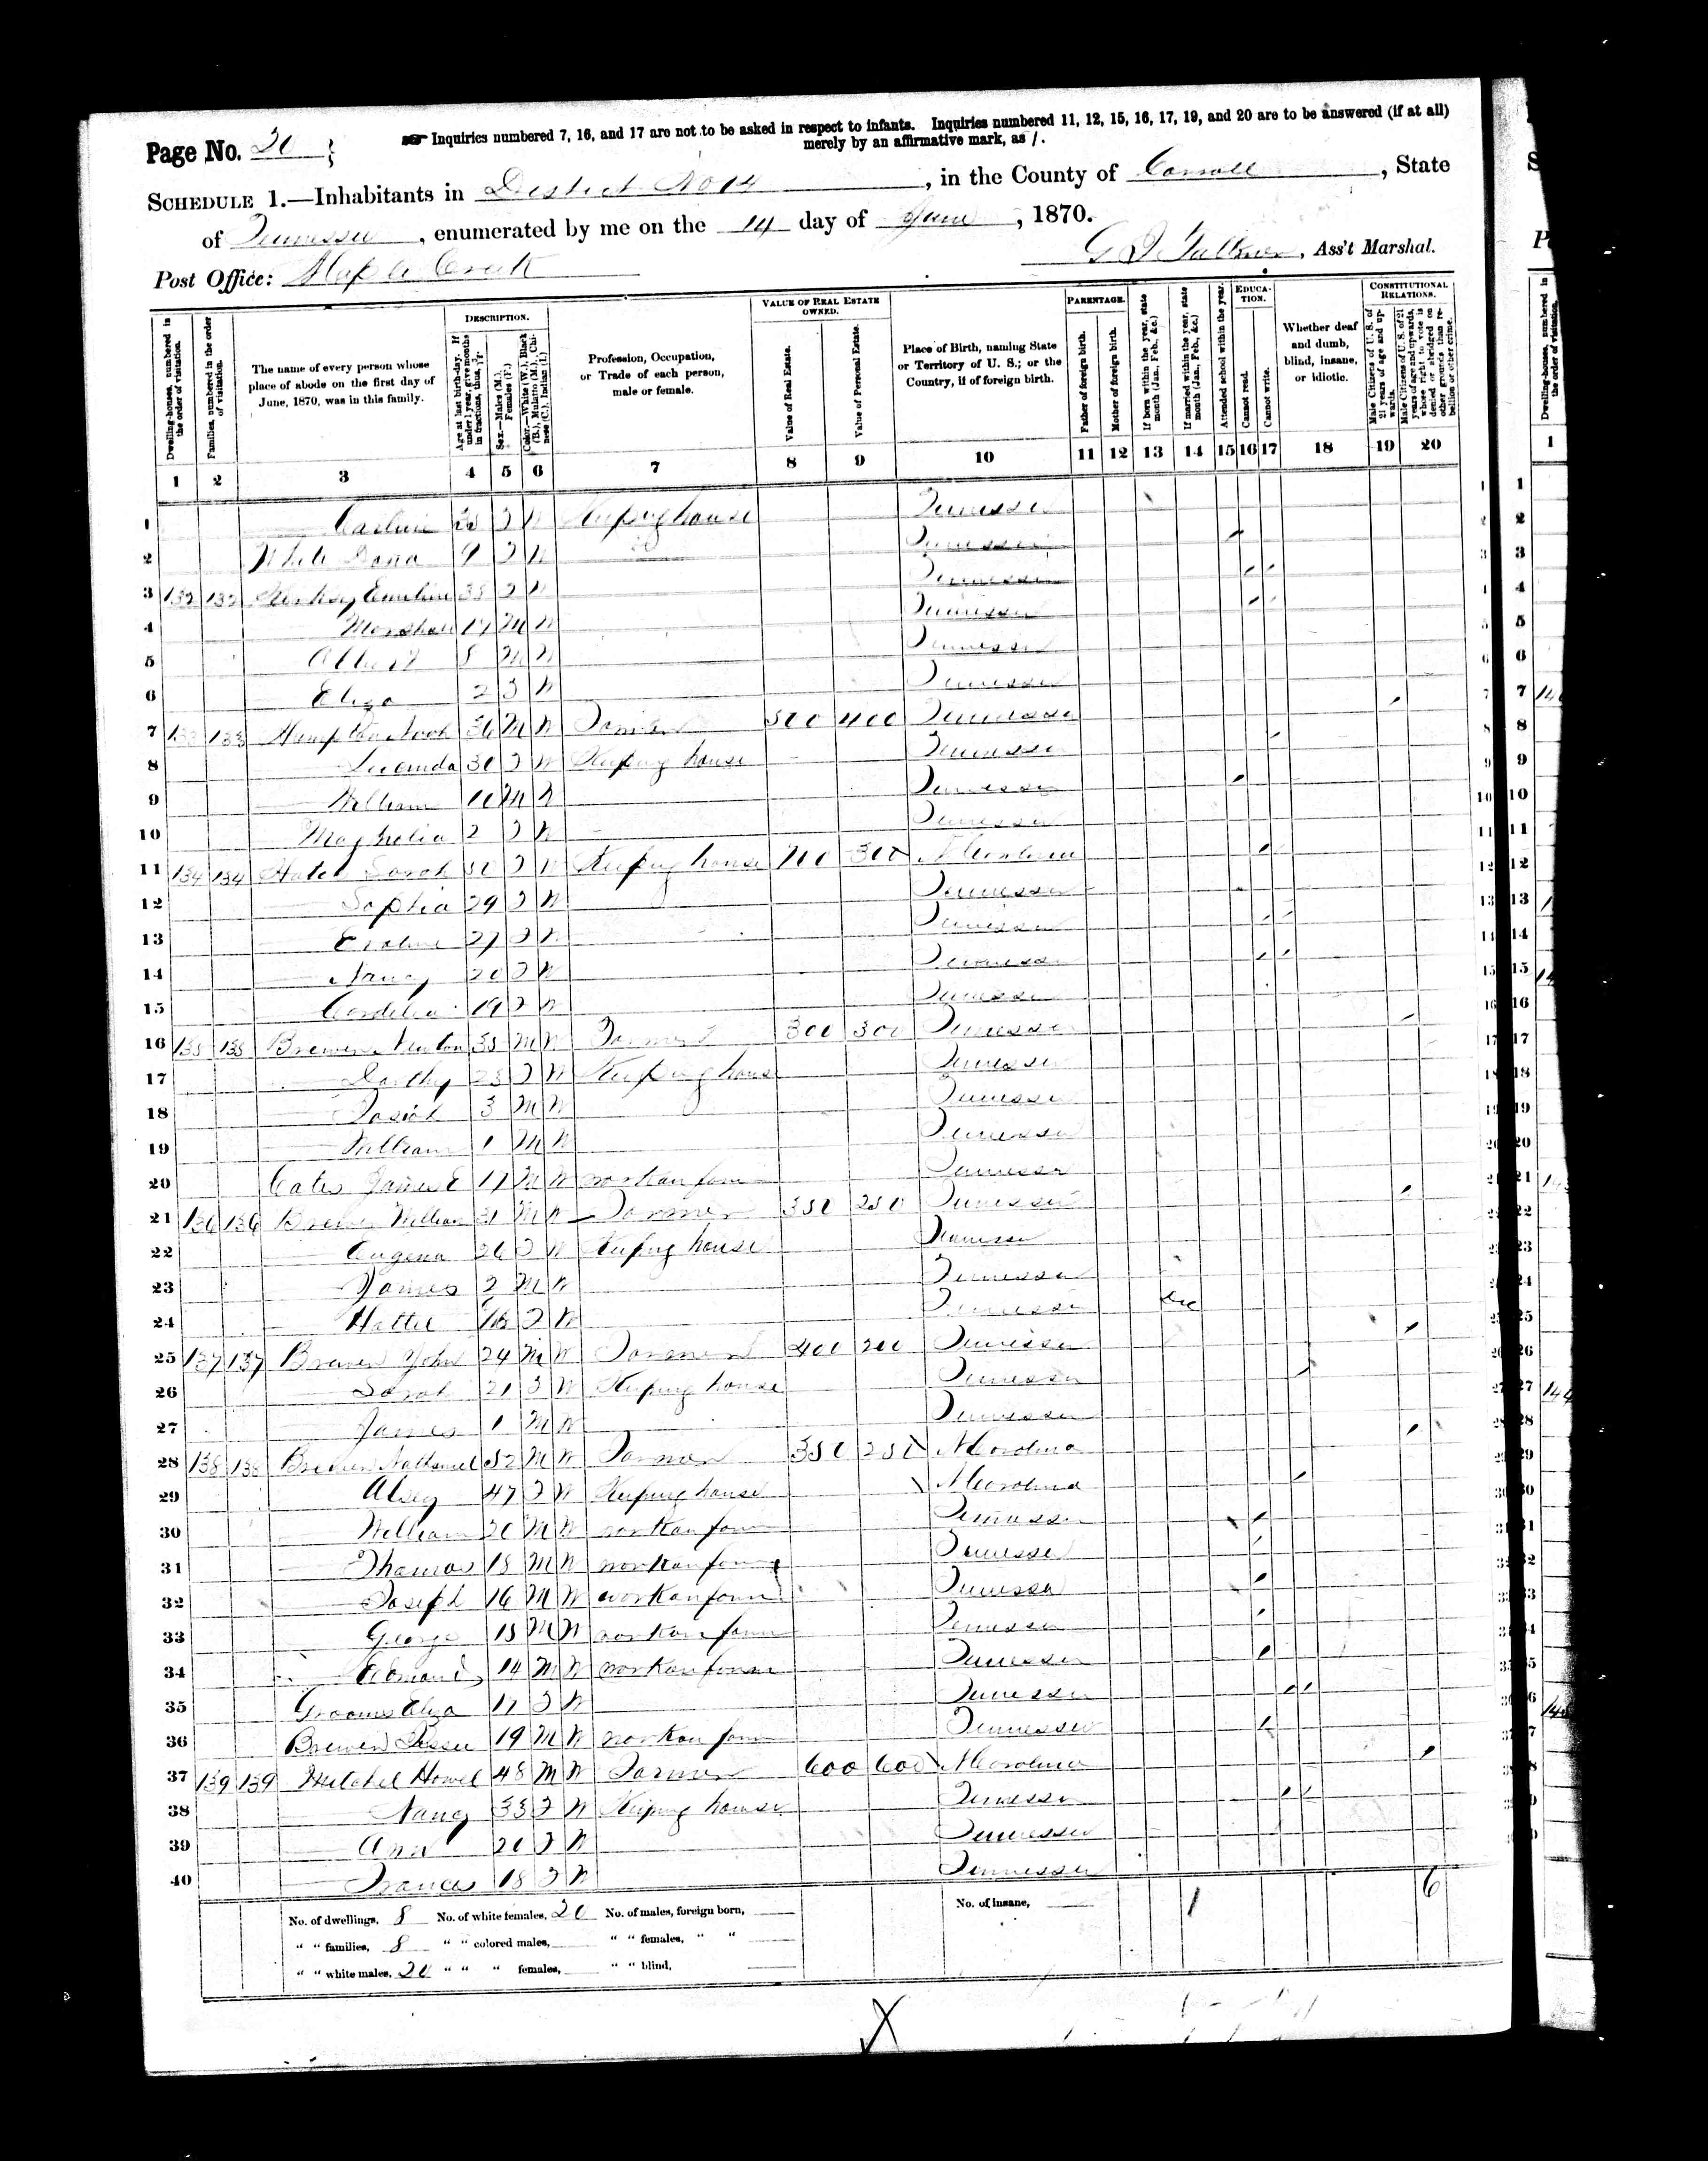 Page No. 20
Inquiries numbered 7, 16, and 17 are not to be asked in respect to infants. Inquiries numbered 11, 12, 15, 16, 17, 19, and 20 are to be answered (if at all)
merely by an affirmative mark, as /.
SCHEDULE 1.—Inhabitants in District No 14, in the County of Carroll, State
of Tennessee, enumerated by me on the 14 day of June, 1870.
Post Office: Maple Creek
Ass't Marshal.
Dwelling-houses, numbered in the order of visitation.
Families, numbered in the order of visitation.
The name of every person whose place of abode on the first day of June, 1870, was in this family.
DESCRIPTION.
Age at last birth-day. If under 1 year, give months in fractions, thus,
Sex.—Males (M.), Females (F.)
Color.—White (W.), Black (B.), Mulatto (M.), Chinese (C.), Indian (I.)
Profession, Occupation, or Trade of each person, male or female.
VALUE OF REAL ESTATE OWNED.
Value of Real Estate.
Value of Personal Estate.
Place of Birth, naming State or Territory of U. S.; or the Country, if of foreign birth.
PARENTAGE.
Father of foreign birth.
Mother of foreign birth.
If born within the year, state month (Jan., Feb., &c.)
If married within the year, state month (Jan., Feb., &c.)
Attended school within the year.
EDUCATION.
Cannot read.
Cannot write.
Whether deaf and dumb, blind, insane, or idiotic.
CONSTITUTIONAL RELATIONS.
Male Citizens of U. S. of 21 years of age and upwards.
Male Citizens of U. S. of 21 years of age and upwards, whose right to vote is denied or abridged on other grounds than rebellion or other crime.
1 2 3 4 5 6 7 8 9 10 11 12 13 14 15 16 17 18 19 20
1 F W Keeping house Tennessee
2 White 9 F W Tennessee
3 132 132 Emeline 38 F W Tennessee
4 Marshall 17 M W Tennessee
5 Albert 8 M W Tennessee
6 Eliza 2 F W Tennessee
7 133 133 Hampton 36 M W Farmer 500 400 Tennessee
8 Lucinda 30 F W Keeping house Tennessee
9 William 10 M W Tennessee
10 Magnolia 2 F W Tennessee
11 134 134 Sarah 50 F W Keeping house 700 300 N Carolina
12 Sophia 29 F W Tennessee
13 27 F W Tennessee
14 Nancy 20 F W Tennessee
15 Cordelia 19 F W Tennessee
16 135 135 Brewer Newton 35 M W Farmer 300 300 Tennessee
17 F W Keeping house Tennessee
18 Josiah 3 M W Tennessee
19 William 1 M W Tennessee
20 Cates James E 17 M W work on farm Tennessee
21 136 136 Brewer William 31 M W Farmer 350 250 Tennessee
22 Eugena 26 F W Keeping house Tennessee
23 James 2 M W Tennessee
24 Hattie F W Tennessee Dec
25 137 137 Brewer John 24 M W Farmer 400 200 Tennessee
26 Sarah 21 F W Keeping house Tennessee
27 James 1 M W Tennessee
28 138 138 Brewer Nathaniel 52 M W Farmer 350 250 N Carolina
29 Alsey 47 F W Keeping house N Carolina
30 William 20 M W work on farm Tennessee
31 Thomas 18 M W work on farm Tennessee
32 Joseph 16 M W work on farm Tennessee
33 George 15 M W work on farm Tennessee
34 Edmond 14 M W work on farm Tennessee
35 Grooms Eliza 17 F W Tennessee
36 Brewer Jesse 19 M W work on farm Tennessee
37 139 139 Mitchel Howel 48 M W Farmer 600 600 N Carolina
38 Nancy 33 F W Keeping house Tennessee
39 Ann 20 F W Tennessee
40 Frances 18 F W Tennessee
No. of dwellings, 8 No. of white females, 20 No. of males, foreign born, No. of insane, 1 6
" " families, 8 " " colored males, " " females, " "
" " white males, 20 " " " females, " " blind,